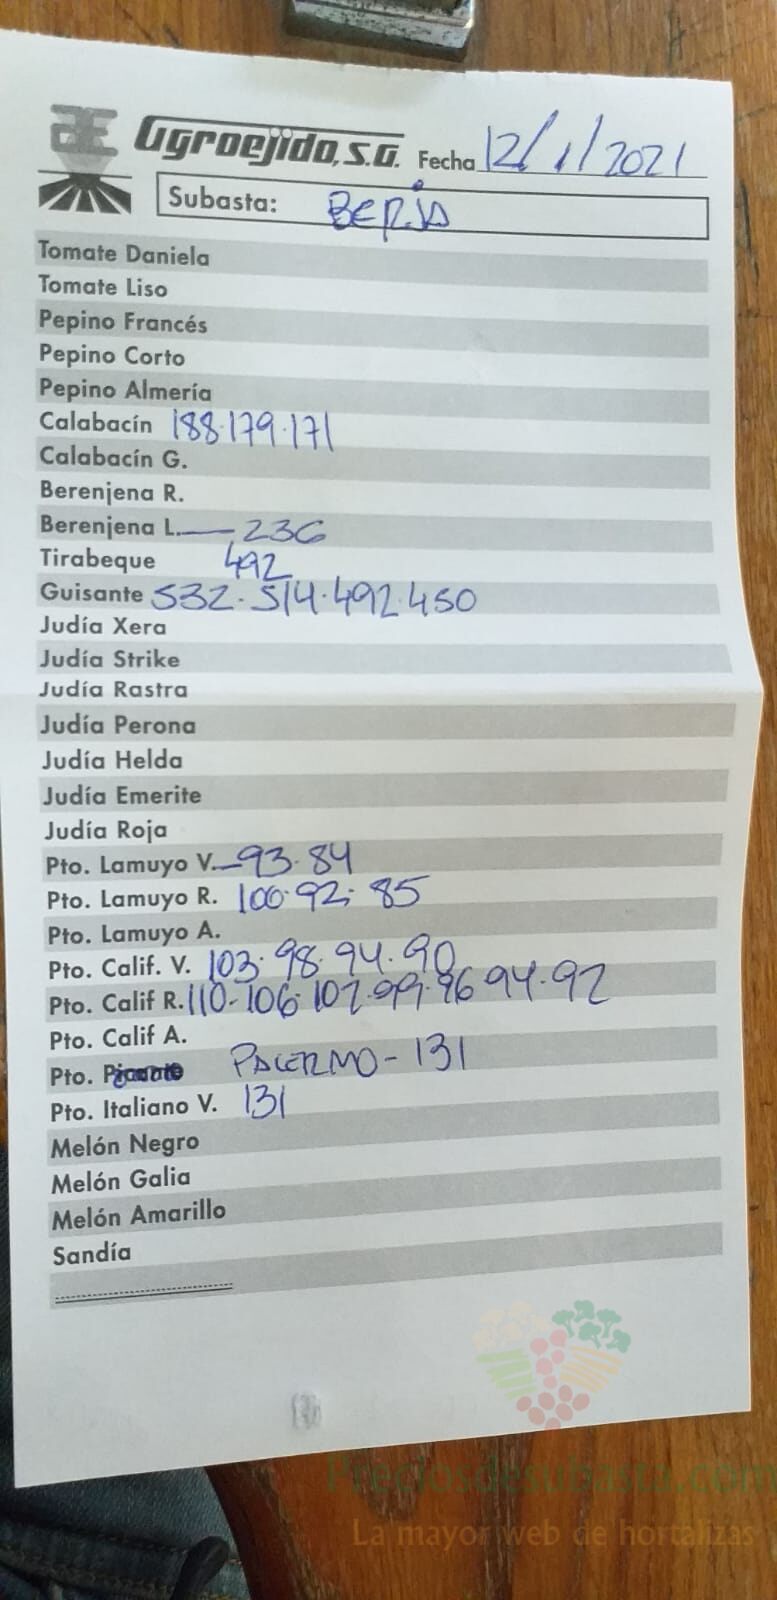 Agroejido, S.A. Fecha 12/1/2021
Subasta: BERJA
Tomate Daniela
Tomate Liso
Pepino Francés
Pepino Corto
Pepino Almería
Calabacín 188.179.171
Calabacín G.
Berenjena R.
Berenjena L. — 236
Tirabeque 492
Guisante 532.514.492.450
Judía Xera
Judía Strike
Judía Rastra
Judía Perona
Judía Helda
Judía Emerite
Judía Roja
Pto. Lamuyo V. — 93.84
Pto. Lamuyo R. 100.92.85
Pto. Lamuyo A.
Pto. Calif. V. 103.98.94.90
Pto. Calif R. 110-106-102.99.96 94.92
Pto. Calif A.
Pto. Picante PALERMO - 131
Pto. Italiano V. 131
Melón Negro
Melón Galia
Melón Amarillo
Sandía
Preciosdesubasta.com
La mayor web de hortalizas